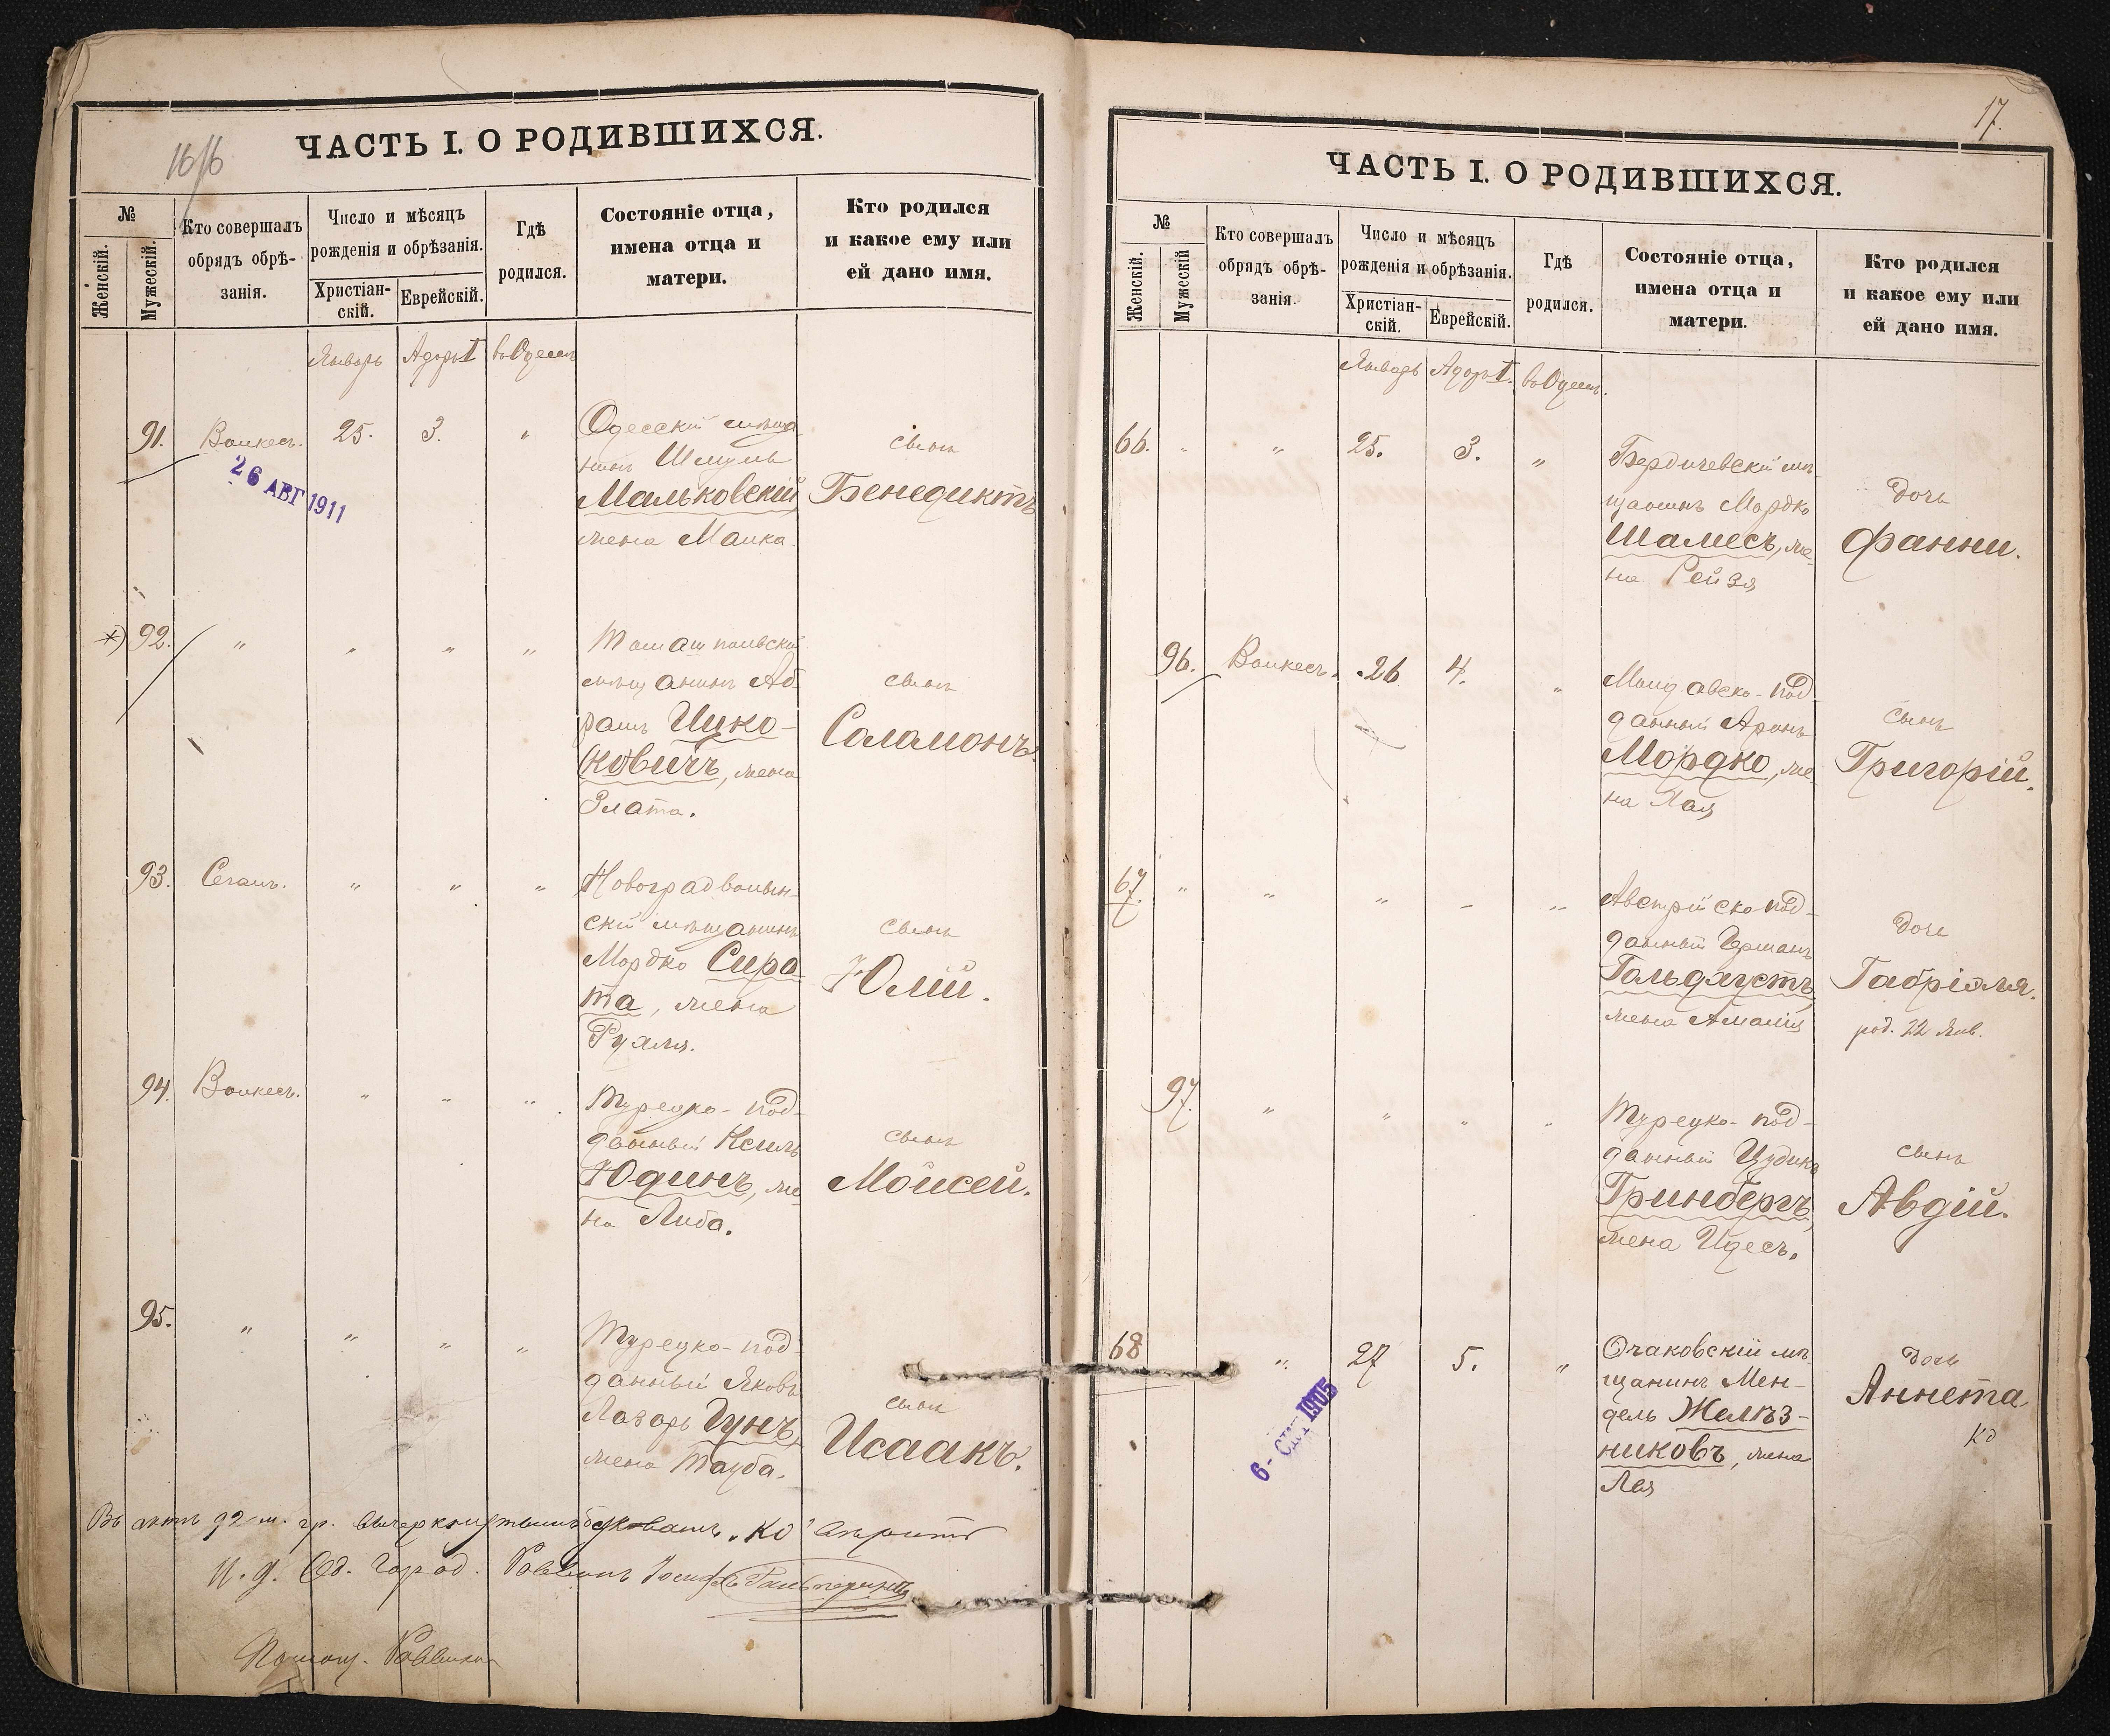 16/16
ЧАСТЬ I. О РОДИВШИХСЯ.
№
Женскій.
Мужескій.
Кто совершалъ
обрядъ обрѣ-
занія.
Число и мѣсяцъ
рожденія и обрѣзанія.
Христіан-
скій.
Еврейскій.
Гдѣ
родился.
Состояніе отца,
имена отца и
матери.
Кто родился
и какое ему или
ей дано имя.
Январь Адаръ I въ Одессѣ
91. Волкесъ. 25. 3. "
26 АВГ 1911
Одесскій мѣща-
нинъ Шмуль
Мальковскій,
жена Малка.
сынъ
Бенедиктъ
*) 92. " " " "
Томашпольскій
мѣщанинъ Аб-
рамъ Ицко-
ковичъ, жена
Злата.
сынъ
Саламонъ.
93. Сегалъ. " " "
Новоградволын-
скій мѣщанинъ
Мордко Сиро-
та, жена
Рухля.
сынъ
Юлій.
94. Волкесъ. " " "
Турецко-под-
данный
Юдинъ, же-
на Либа.
сынъ
Мойсей.
95. " " " "
Турецко-под-
данный Яковъ
Лазарь Гунъ,
жена Тауба.
сынъ
Исаакъ.
Въ актѣ 92 м. гр. вычеркнутымъ буквамъ "ко" вѣрить
И. д. Од. Город. Раввинъ Іосифъ Гальперинъ
Помощ. Раввина
17.
ЧАСТЬ I. О РОДИВШИХСЯ.
№
Женскій.
Мужескій
Кто совершалъ
обрядъ обрѣ-
занія.
Число и мѣсяцъ
рожденія и обрѣзанія.
Христіан-
скій.
Еврейскій.
Гдѣ
родился.
Состояніе отца,
имена отца и
матери.
Кто родился
и какое ему или
ей дано имя.
Январь Адаръ I. въ Одессѣ.
66. " " 25. 3. "
Бердичевскій мѣ-
щанинъ Мордко
Шамесъ, же-
на Рейзя
дочь
Фанни.
96. Волкесъ. 26 4. "
Молдавско-под-
данный Аронъ
Мордко, же-
на Лая
сынъ
Григорій.
67. " " " - "
Австрійско под-
данный Германъ
Гольдгустъ,
жена Амалія
дочь
Габріэля.
род. 22 Янв.
97. " " " "
Турецко-под-
данный
Гринбергъ,
жена Идесъ.
сынъ
Авдій.
68 " 27 5. "
6 - СЕН 1905
Очаковскій мѣ-
щанинъ Мен-
дель Желѣз-
никовъ, жена
Лея
дочь
Аннета